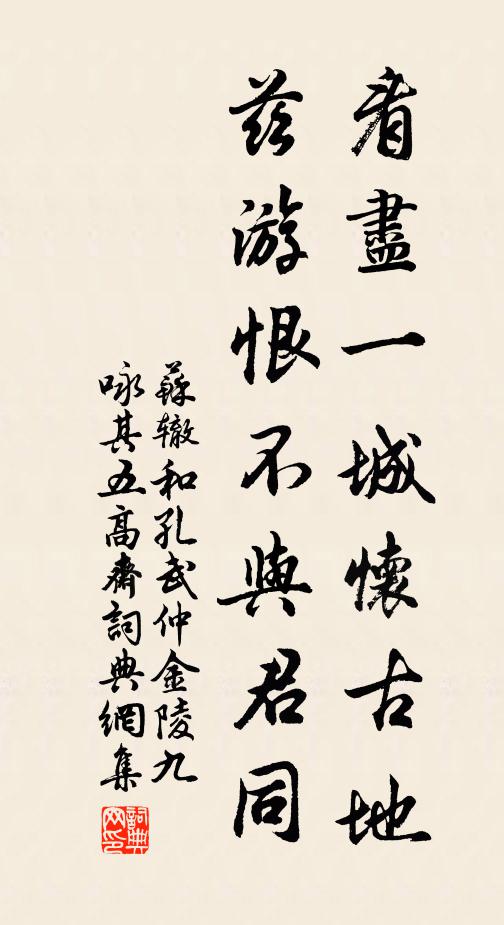 看盡一城懷古地
茲游恨不與君同
蘇辙和孔武仲金陵九
咏其五高齋詞典網集
詞典
网印